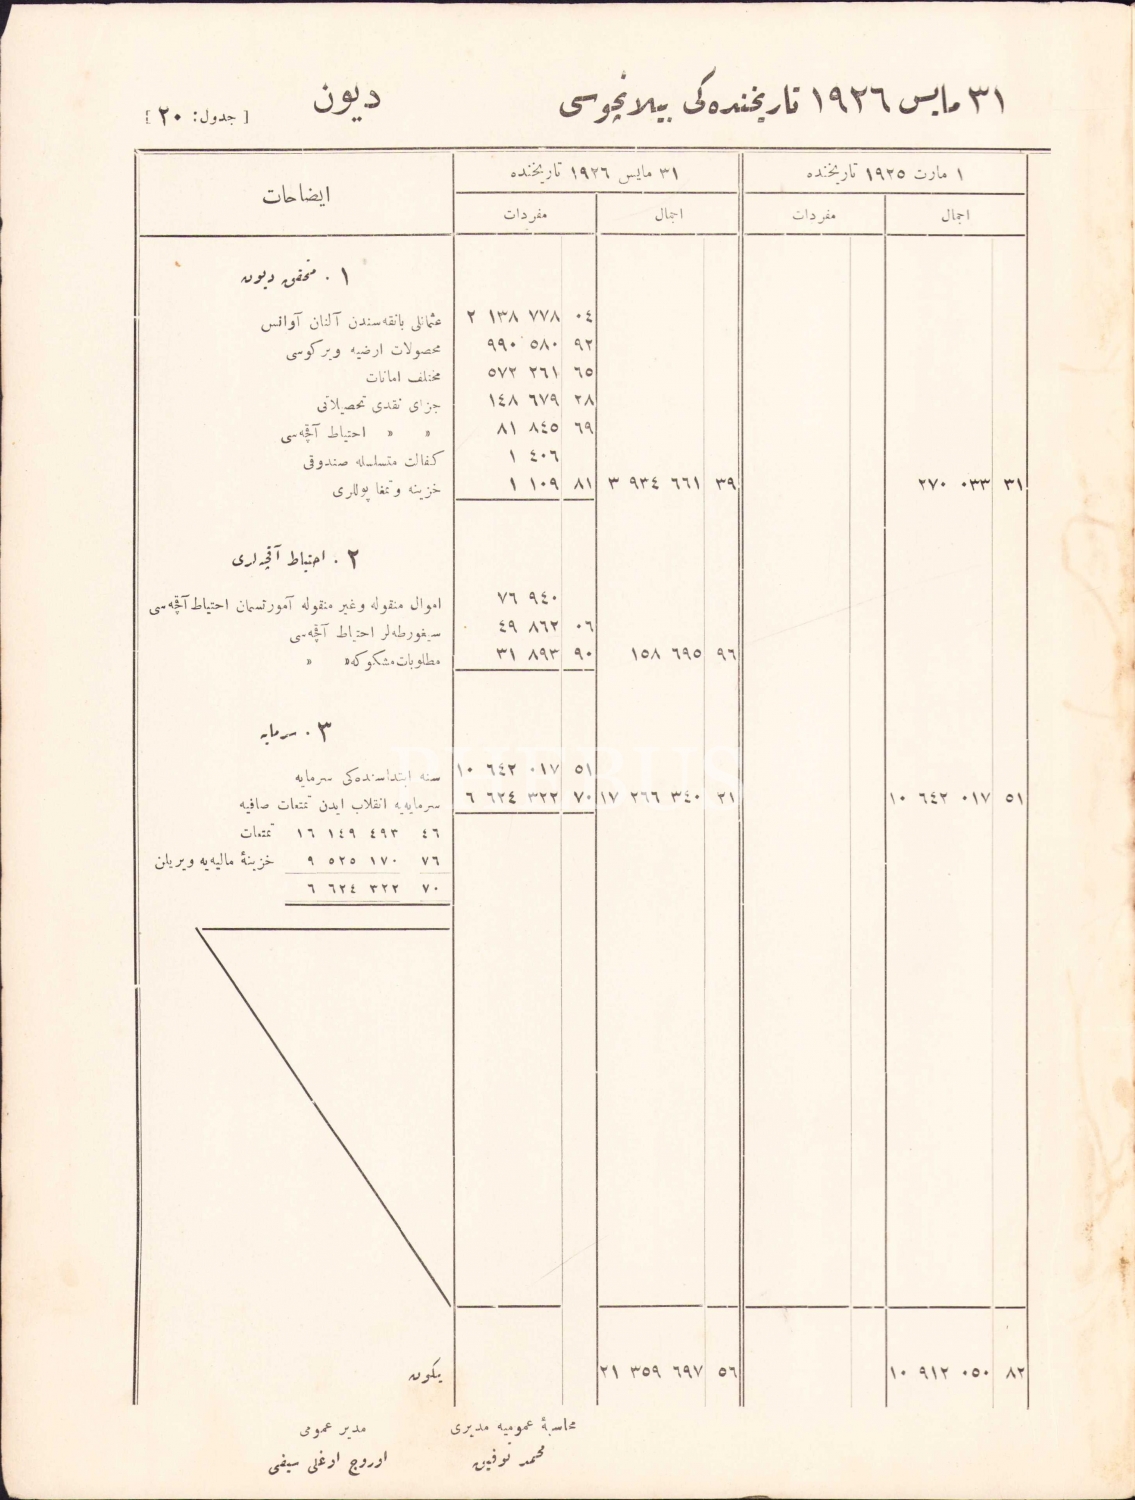 ٣١ مايس ١٩٢٦ تاريخنده كی بيلانچوسی
ديون
[ جدول: ٢٠ ]
١ مارت ١٩٢٥ تاريخنده
٣١ مايس ١٩٢٦ تاريخنده
ايضاحات
اجمال مفردات اجمال مفردات
١ . متحقق ديون
عثمانلی بانقه‌سندن آلنان آوانس ٢ ١٣٨ ٧٧٨ ٠٤
محصولات ارضيه ويركوسی ٩٩٠ ٥٨٠ ٩٢
مختلف امانات ٥٧٢ ٢٦١ ٦٥
جزای نقدی تحصيلاتی ١٤٨ ٦٧٩ ٢٨
« « احتياط آقچه‌سی ٨١ ٨٤٥ ٦٩
كفالت متسلسله صندوقی ١ ٤٠٦
خزينه و تمغا پوللری ١ ١٠٩ ٨١ ٣ ٩٣٤ ٦٦١ ٣٩ ٢٧٠ ٠٣٣ ٣١
٢ . احتياط آقچه‌لری
اموال منقوله و غير منقوله آمورتسمان احتياط آقچه‌سی ٧٦ ٩٤٠
سيغورطه‌لر احتياط آقچه‌سی ٤٩ ٨٦٢ ٠٦
مطلوبات مشكوكه « « ٣١ ٨٩٣ ٩٠ ١٥٨ ٦٩٥ ٩٦
٣ . سرمايه
سنه ابتداسنده‌كی سرمايه ١٠ ٦٤٢ ٠١٧ ٥١
سرمايه‌يه انقلاب ايدن تمتعات صافيه ٦ ٦٢٤ ٣٢٢ ٧٠ ١٧ ٢٦٦ ٣٤٠ ٢١ ١٠ ٦٤٢ ٠١٧ ٥١
تمتعات ١٦ ١٤٩ ٤٩٣ ٤٦
خزينهٔ ماليه‌يه ويريلن ٩ ٥٢٥ ١٧٠ ٧٦
٦ ٦٢٤ ٣٢٢ ٧٠
PHEBUS
يكون ٢١ ٣٥٩ ٦٩٧ ٥٦ ١٠ ٩١٢ ٠٥٠ ٨٢
محاسبهٔ عموميه مديری
محمد توفيق
مدير عمومی
اوروج اوغلی سيفی